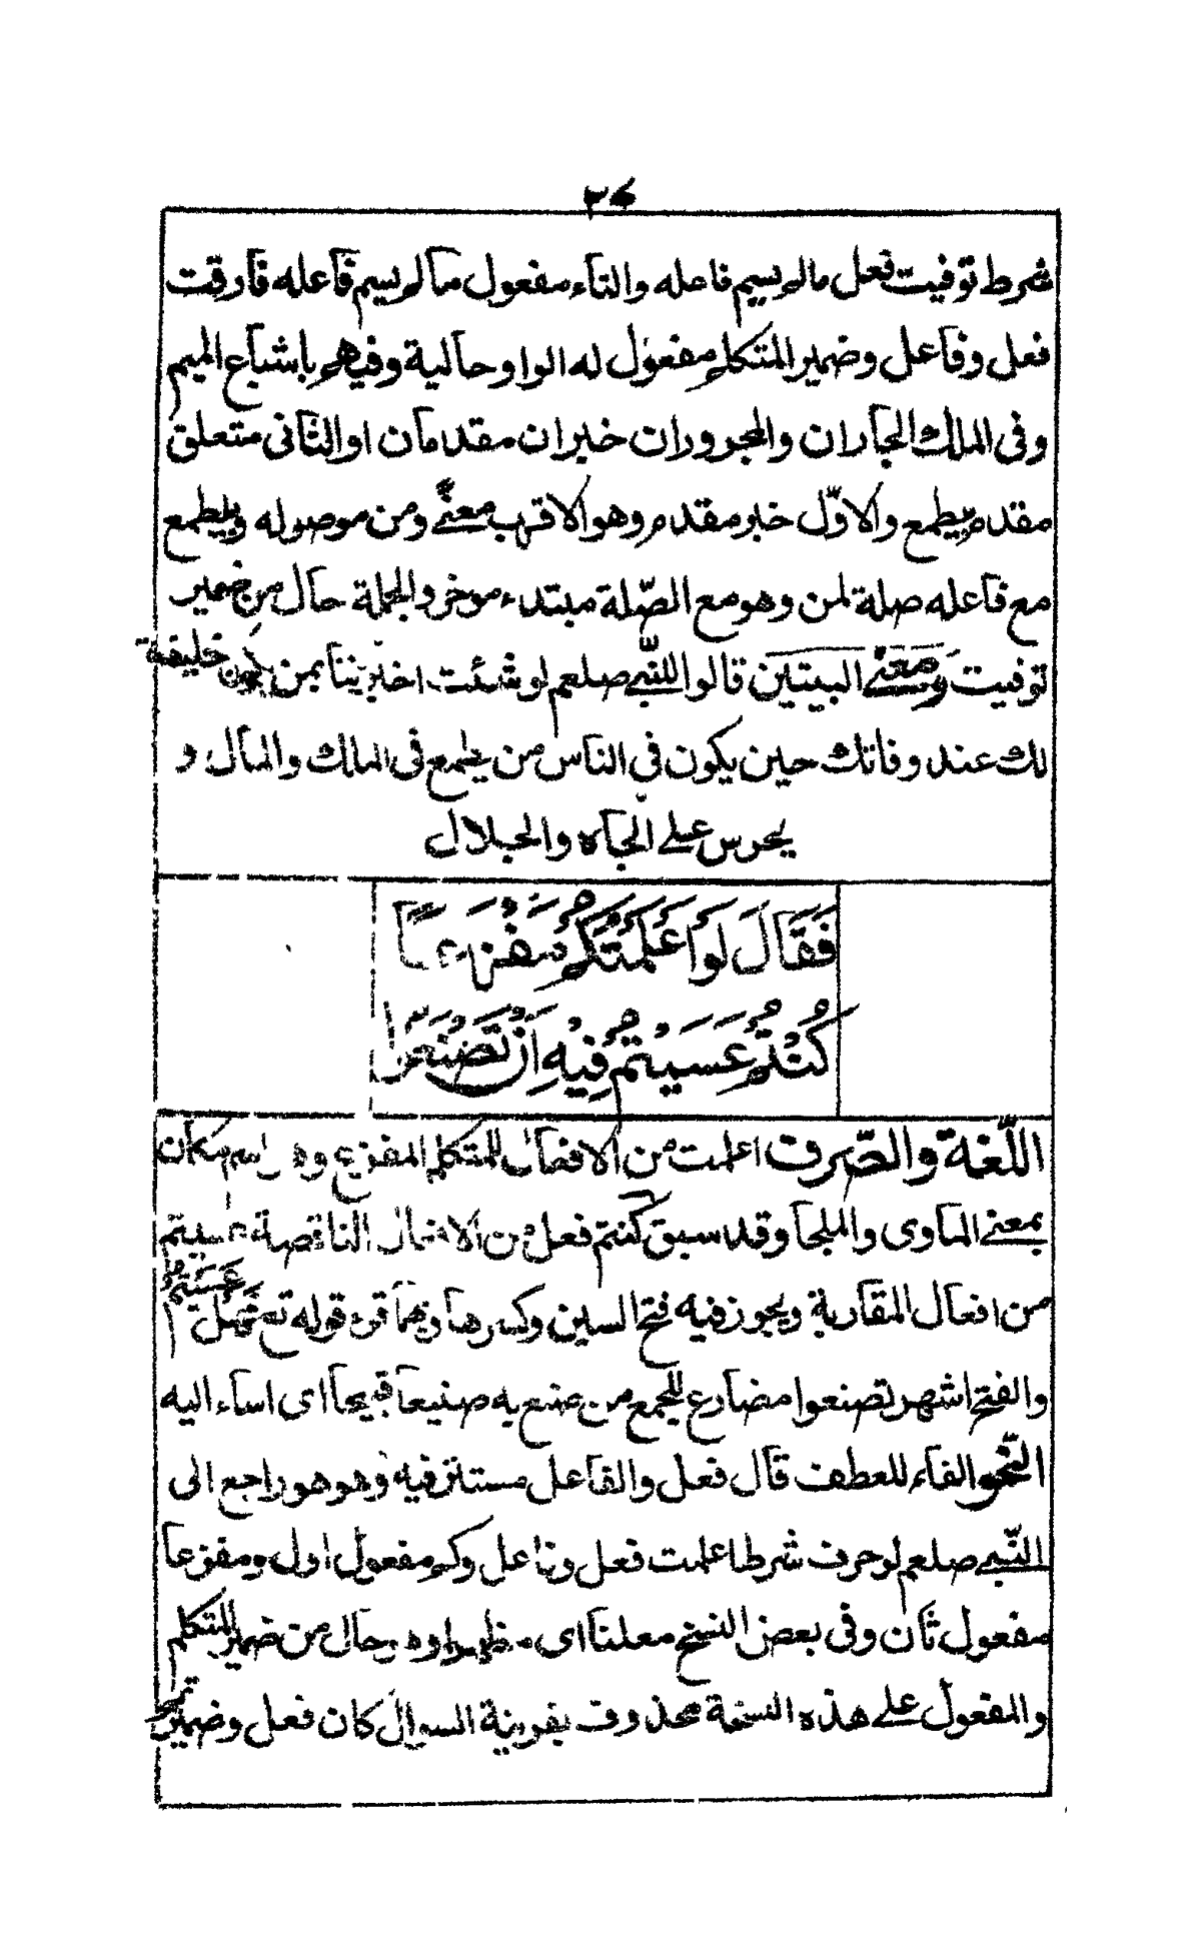 ٢٦
شرط توفيت فعل مالم يسم فاعله والتاء مفعول مالم يسم فاعله فارقت
فعل وفاعل وضمير المتكلم مفعول له الواو حالية وفيهم باشباع الميم
وفى الملك الجاران والمجروران خبران مقدمان او الثانى متعلق
مقدم بيطمع والاوّل خبر مقدم وهو الاقرب معنًى ومن موصوله ويطمع
مع فاعله صلة لمن وهو مع الصّلة مبتدء موخر والجملة حال من ضمير
توفيت ومعنى البيتين قالوا للنّبى صلعم لو شئت اخبرتنا بمن يكون خليفة
لك عند وفاتك حين يكون فى الناس من يطمع فى الملك والمال و
يحرس على الجاه والجلال
فَقَالَ لَوْ اَعْلَمْتُكُمْ مَفْزَعًا
كُنْتُمْ عَسَيْتُمْ فِيْهِ اَنْ تَصْنَعُوْا
اللّغة والصّرف اعلمت من الافعال للمتكلم المفزع وهو اسم مكان
بمعنى الماوى والملجا وقد سبق كنتم فعل من الافعال الناقصة عسيتم
من افعال المقاربة ويجوز فيه فتح السين وكسرها وبهما قرء قوله تع فَهَلْ عَسَيْتُمْ
والفتح اشهر تصنعوا مضارع للجمع من صنع به صنيعا قبيحا اى اساء اليه
النّحو الفاء للعطف قال فعل والفاعل مستتر فيه وهو هو راجع الى
النّبى صلعم لو حرف شرط اعلمت فعل وفاعل وكم مفعول اول ومفزعا
مفعول ثان وفى بعض النسخ معلنا اى مظهرا وهو حال من ضمير المتكلم
والمفعول على هذه النسخة محذوف بقرينة السوال كان فعل وضمير